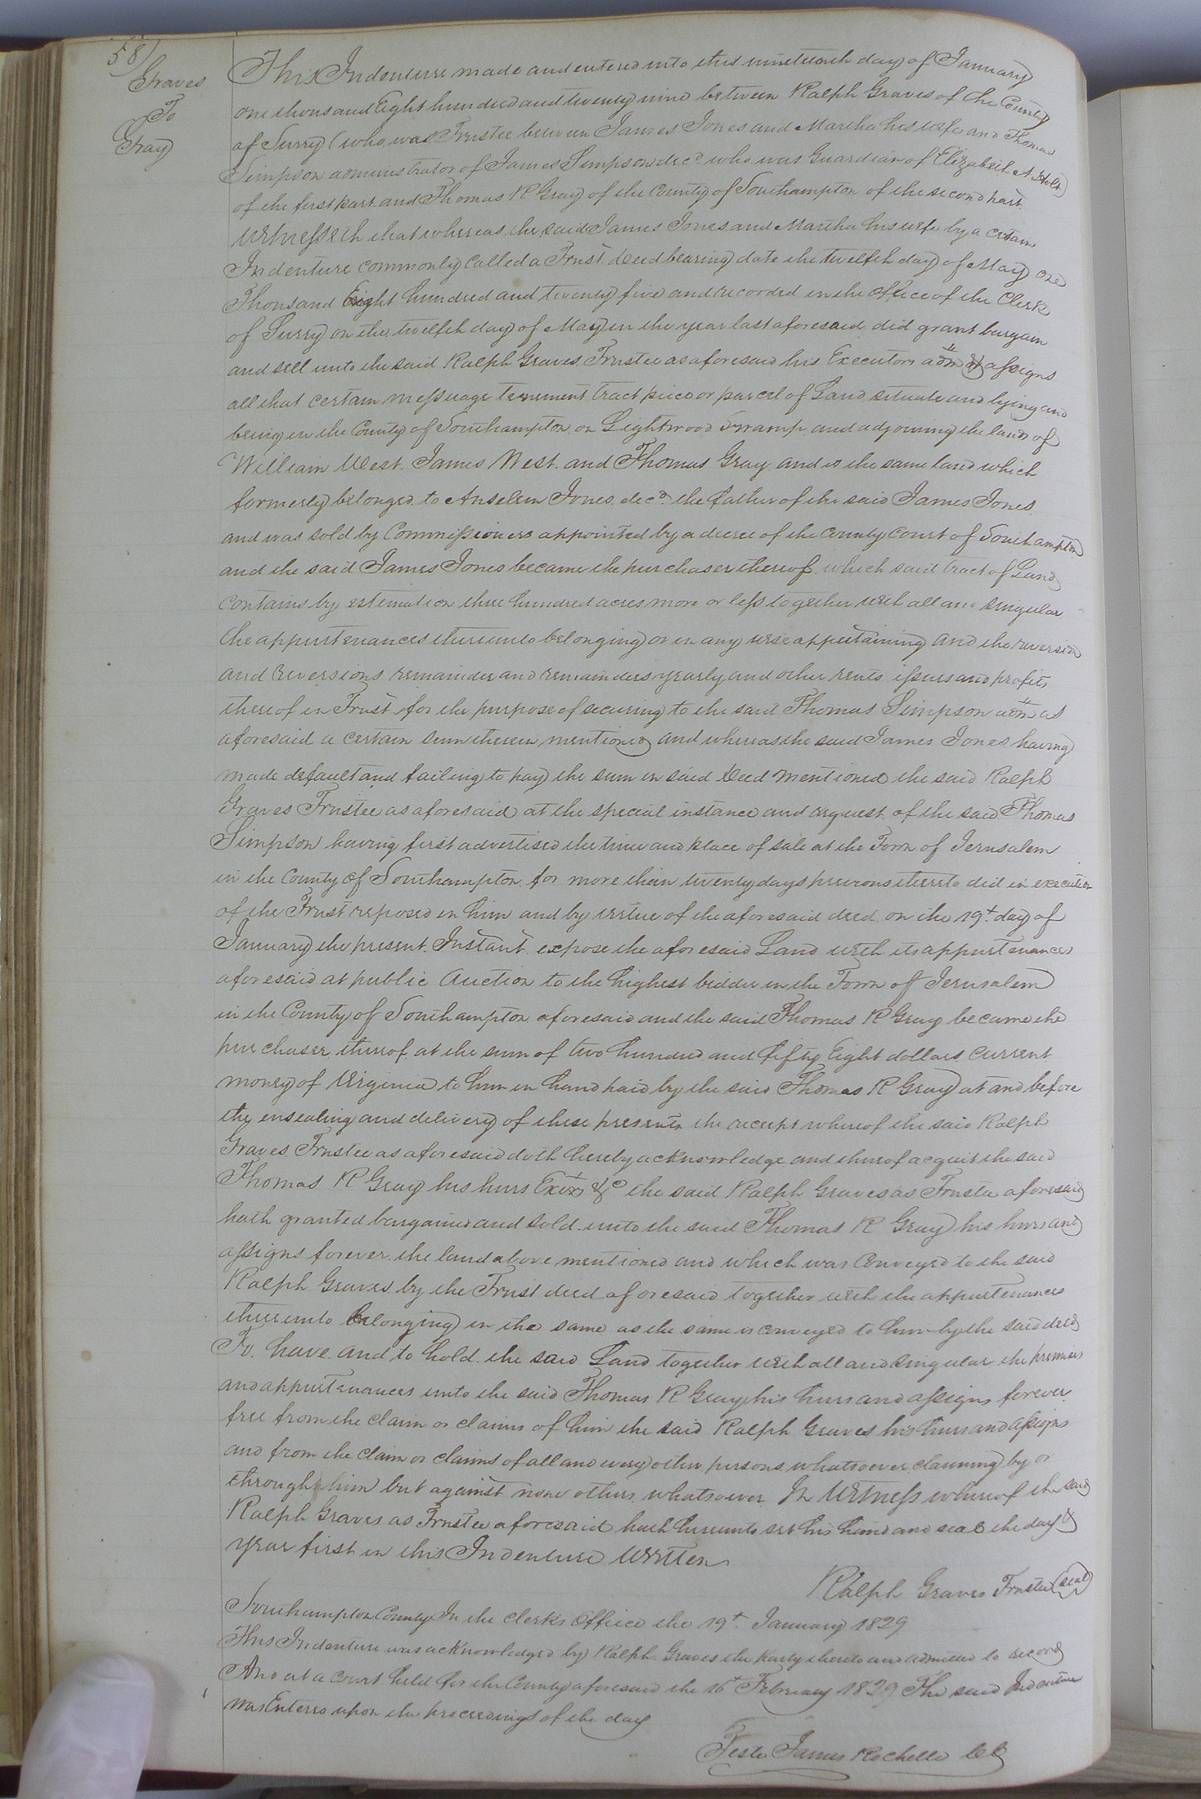 58)
Graves
To
Gray
This Indenture made and entered into this nineteenth day of January
one thousand Eight hundred and twenty nine between Ralph Graves of the County
of Surry (who was Trustee between James Jones and Martha his wife and Thomas
Simpson administrator of James Simpson decd who was Guardian of Elizabeth A
of the first part and Thomas R Gray of the County of Southampton of the second part
Witnesseth that whereas the said James Jones and Martha his wife by a certain
Indenture commonly called a Trust Deed bearing date the twelfth day of May one
Thousand Eight hundred and twenty five and recorded in the office of the Clerk
of Surry on the twelfth day of May in the year last aforesaid did grant bargain
and sell unto the said Ralph Graves Trustee as aforesaid his Executors adm & assigns
all that certain messuage tenement tract piece or parcel of Land situate and lying and
being in the County of Southampton on Lightwood Swamp and adjoining the lands of
William West James West and Thomas Gray and is the same land which
formerly belonged to Anselem Jones decd the father of the said James Jones
and was sold by Commissioners appointed by a decree of the county court of Southampton
and the said James Jones became the purchaser thereof which said tract of Land
contains by estimation three hundred acres more or less together with all and singular
the appurtenances thereunto belonging or in any wise appertaining and the reversion
and reversions remainder and remainders yearly and other rents issues and profits
thereof in Trust for the purpose of securing to the said Thomas Simpson adm as
aforesaid a certain sum therein mentioned and whereas the said James Jones having
made default and failing to pay the sum in said Deed mentioned the said Ralph
Graves Trustee as aforesaid at the special instance and request of the said Thomas
Simpson having first advertised the time and place of sale at the Town of Jerusalem
in the County of Southampton for more than twenty days previous thereto did in execution
of the Trust reposed in him and by virtue of the aforesaid deed on the 19t day of
January the present Instant expose the aforesaid Land with its appurtenances
aforesaid at public Auction to the highest bidder in the Town of Jerusalem
in the County of Southampton aforesaid and the said Thomas R Gray became the
purchaser thereof at the sum of two hundred and fifty Eight dollars current
money of Virginia to him in hand paid by the said Thomas R Gray at and before
the ensealing and delivery of these presents the receipt whereof the said Ralph
Graves Trustee as aforesaid doth hereby acknowledge and thereof acquit the said
Thomas R Gray his heirs Exors &c the said Ralph Graves as Trustee aforesaid
hath granted bargained and sold unto the said Thomas R Gray his heirs and
assigns forever the land above mentioned and which was Conveyed to the said
Ralph Graves by the Trust deed aforesaid together with the appurtenances
thereunto belonging in the same as the same is conveyed to him by the said deed
To have and to hold the said Land together with all and singular the premises
and appurtenances unto the said Thomas R Gray his heirs and assigns forever
free from the claim or claims of him the said Ralph Graves his heirs and assigns
and from the claim or claims of all and every other persons whatsoever claiming by or
through him but against none others whatsoever In Witness whereof the said
Ralph Graves as Trustee aforesaid hath hereunto set his hand and seal the day &
year first in this Indenture Written
Ralph Graves Trustee (seal)
Southampton County In the Clerks Office the 19t January 1829
This Indenture was acknowledged by Ralph Graves the party thereto and admitted to record
And at a Court held for the County aforesaid the 16t February 1829 The said Indenture
was Entered upon the proceedings of the day
Teste James Rochelle CC